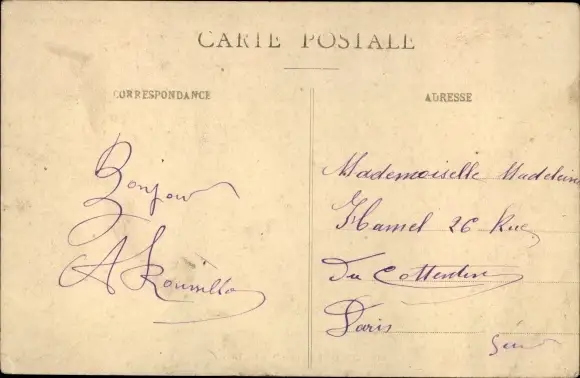 CARTE POSTALE
CORRESPONDANCE
ADRESSE
Bonjour
A Roumilla
Mademoiselle Madeleine
Hamel 26 Rue
Du Cottentin
Paris